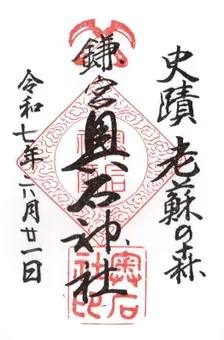 史蹟 老蘇の森
鎌宮 奥石神社
令和七年六月廿一日
奥石
社印